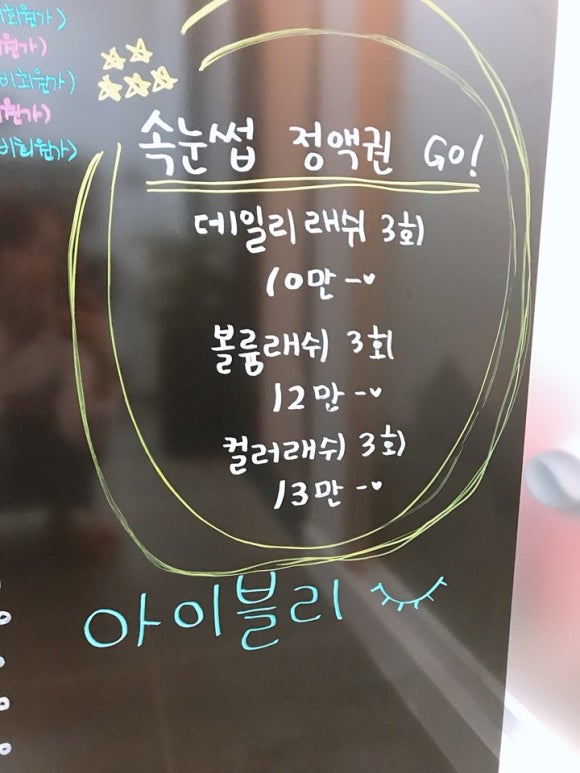 회원가)
회원가)
비회원가)
회원가)
비회원가)
속눈썹 정액권 GO!
데일리래쉬 3회
10만-♥
볼륨래쉬 3회
12만-♥
컬러래쉬 3회
13만-♥
아이블리